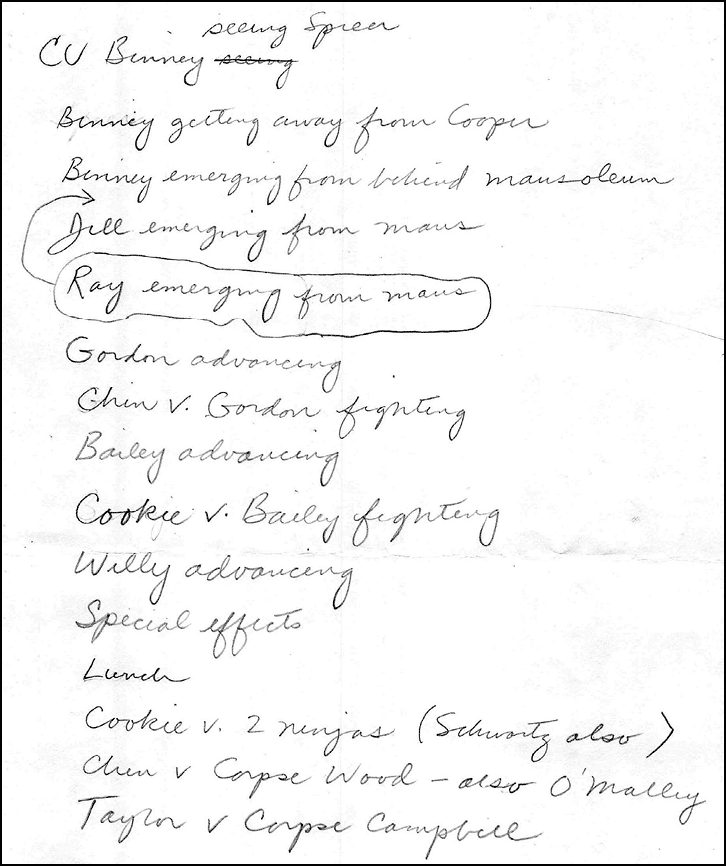 seeing Speer
CU Binney seeing
Binney getting away from Cooper
Binney emerging from behind mausoleum
Jill emerging from maus
Ray emerging from maus
Gordon advancing
Chin v. Gordon fighting
Bailey advancing
Cookie v. Bailey fighting
Willy advancing
Special effects
Lunch
Cookie v. 2 ninjas (Schwartz also)
Chin v Corpse Wood – also O'Malley
Taylor v Corpse Campbell